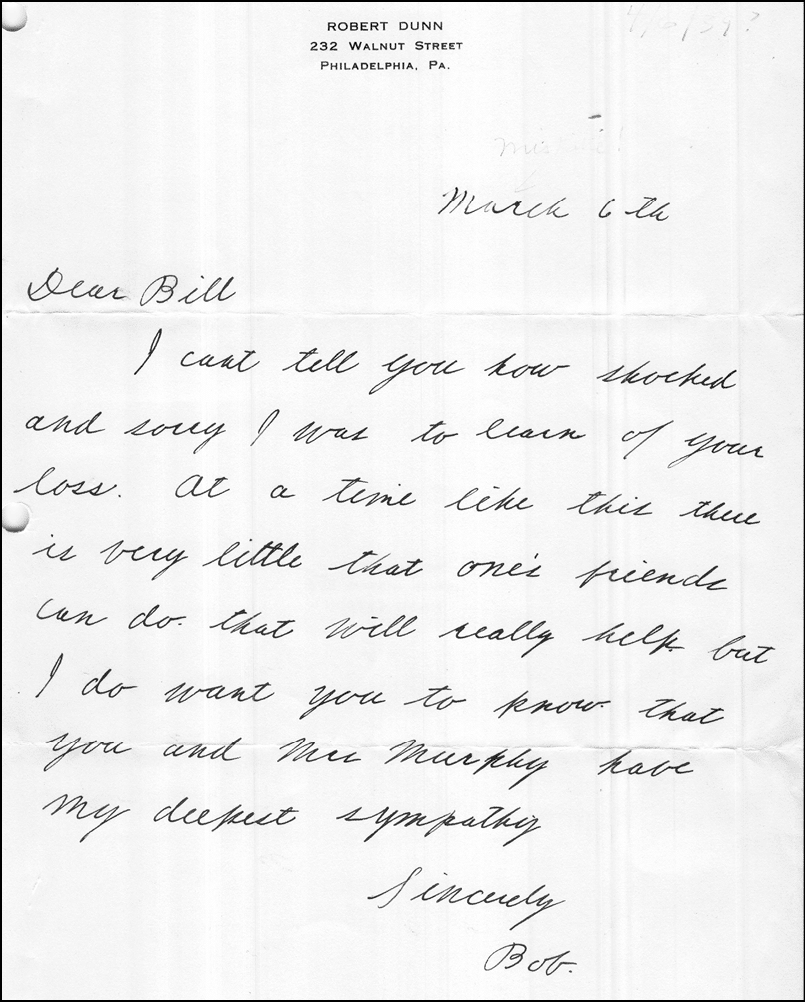 ROBERT DUNN
232 WALNUT STREET
PHILADELPHIA, PA.
March 6th
Dear Bill
I cant tell you how shocked
and sorry I was to learn of your
loss. At a time like this there
is very little that one's friends
can do that will really help but
I do want you to know that
you and Mrs Murphy have
my deepest sympathy
Sincerely
Bob.